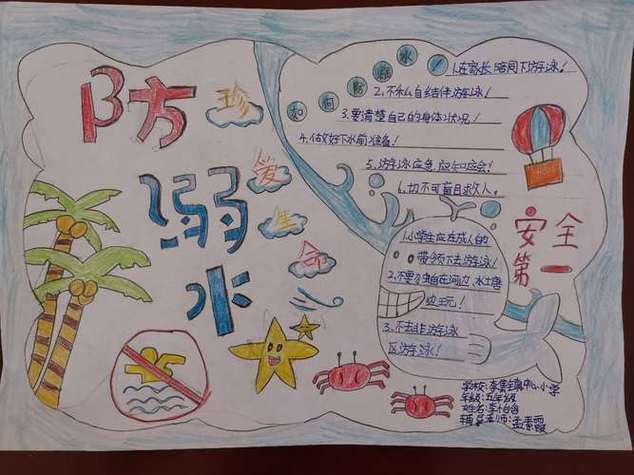 防
溺
水
珍
爱
生
命
如何防溺水！
1.在家长陪同下游泳！
2.不私自结伴游泳！
3.要清楚自己的身体状况！
4.做好下水前准备！
5.游泳应急,应知应会！
6.切不可盲目救人。
1.小学生应在成人的
带领下去游泳！
2.不要独自在河边、水塘
边玩！
3.不去非游泳
区游泳！
安全
第一
学校:李集镇中心小学
年级:五年级
姓名:李
辅导老师:孟素霞